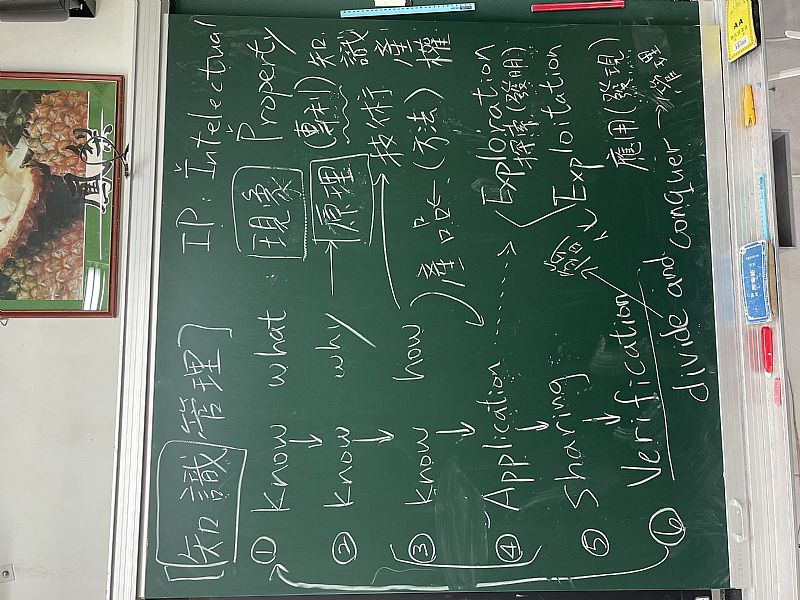 [知識管理] IP: Intelectual
Property
① Know what 現象
(專利) 知識產權
② Know why → 原理
③ Know how 技術
產品 (方法)
④ Application Exploration
探索發明
⑤ Sharing Exploitation
應用發現
⑥ Verification
divide and conquer →